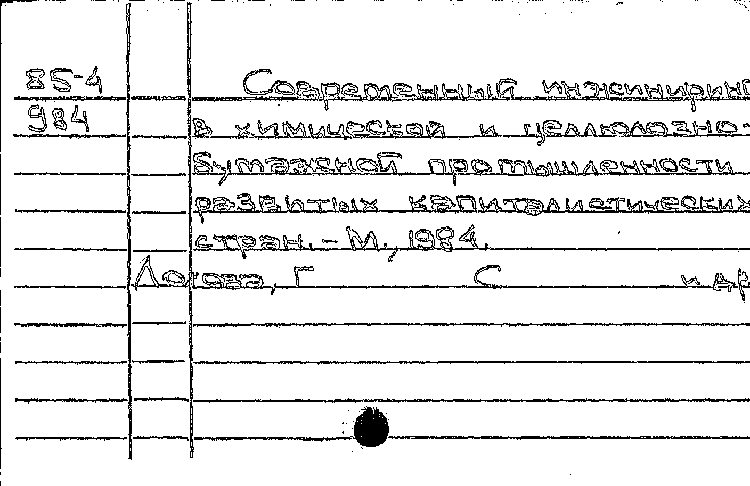 85-4 Современный инжиниринг
984 в химической и целлюлозно-
бумажной промышленности
развитых капиталистических
стран. - М., 1984.
Г С и др